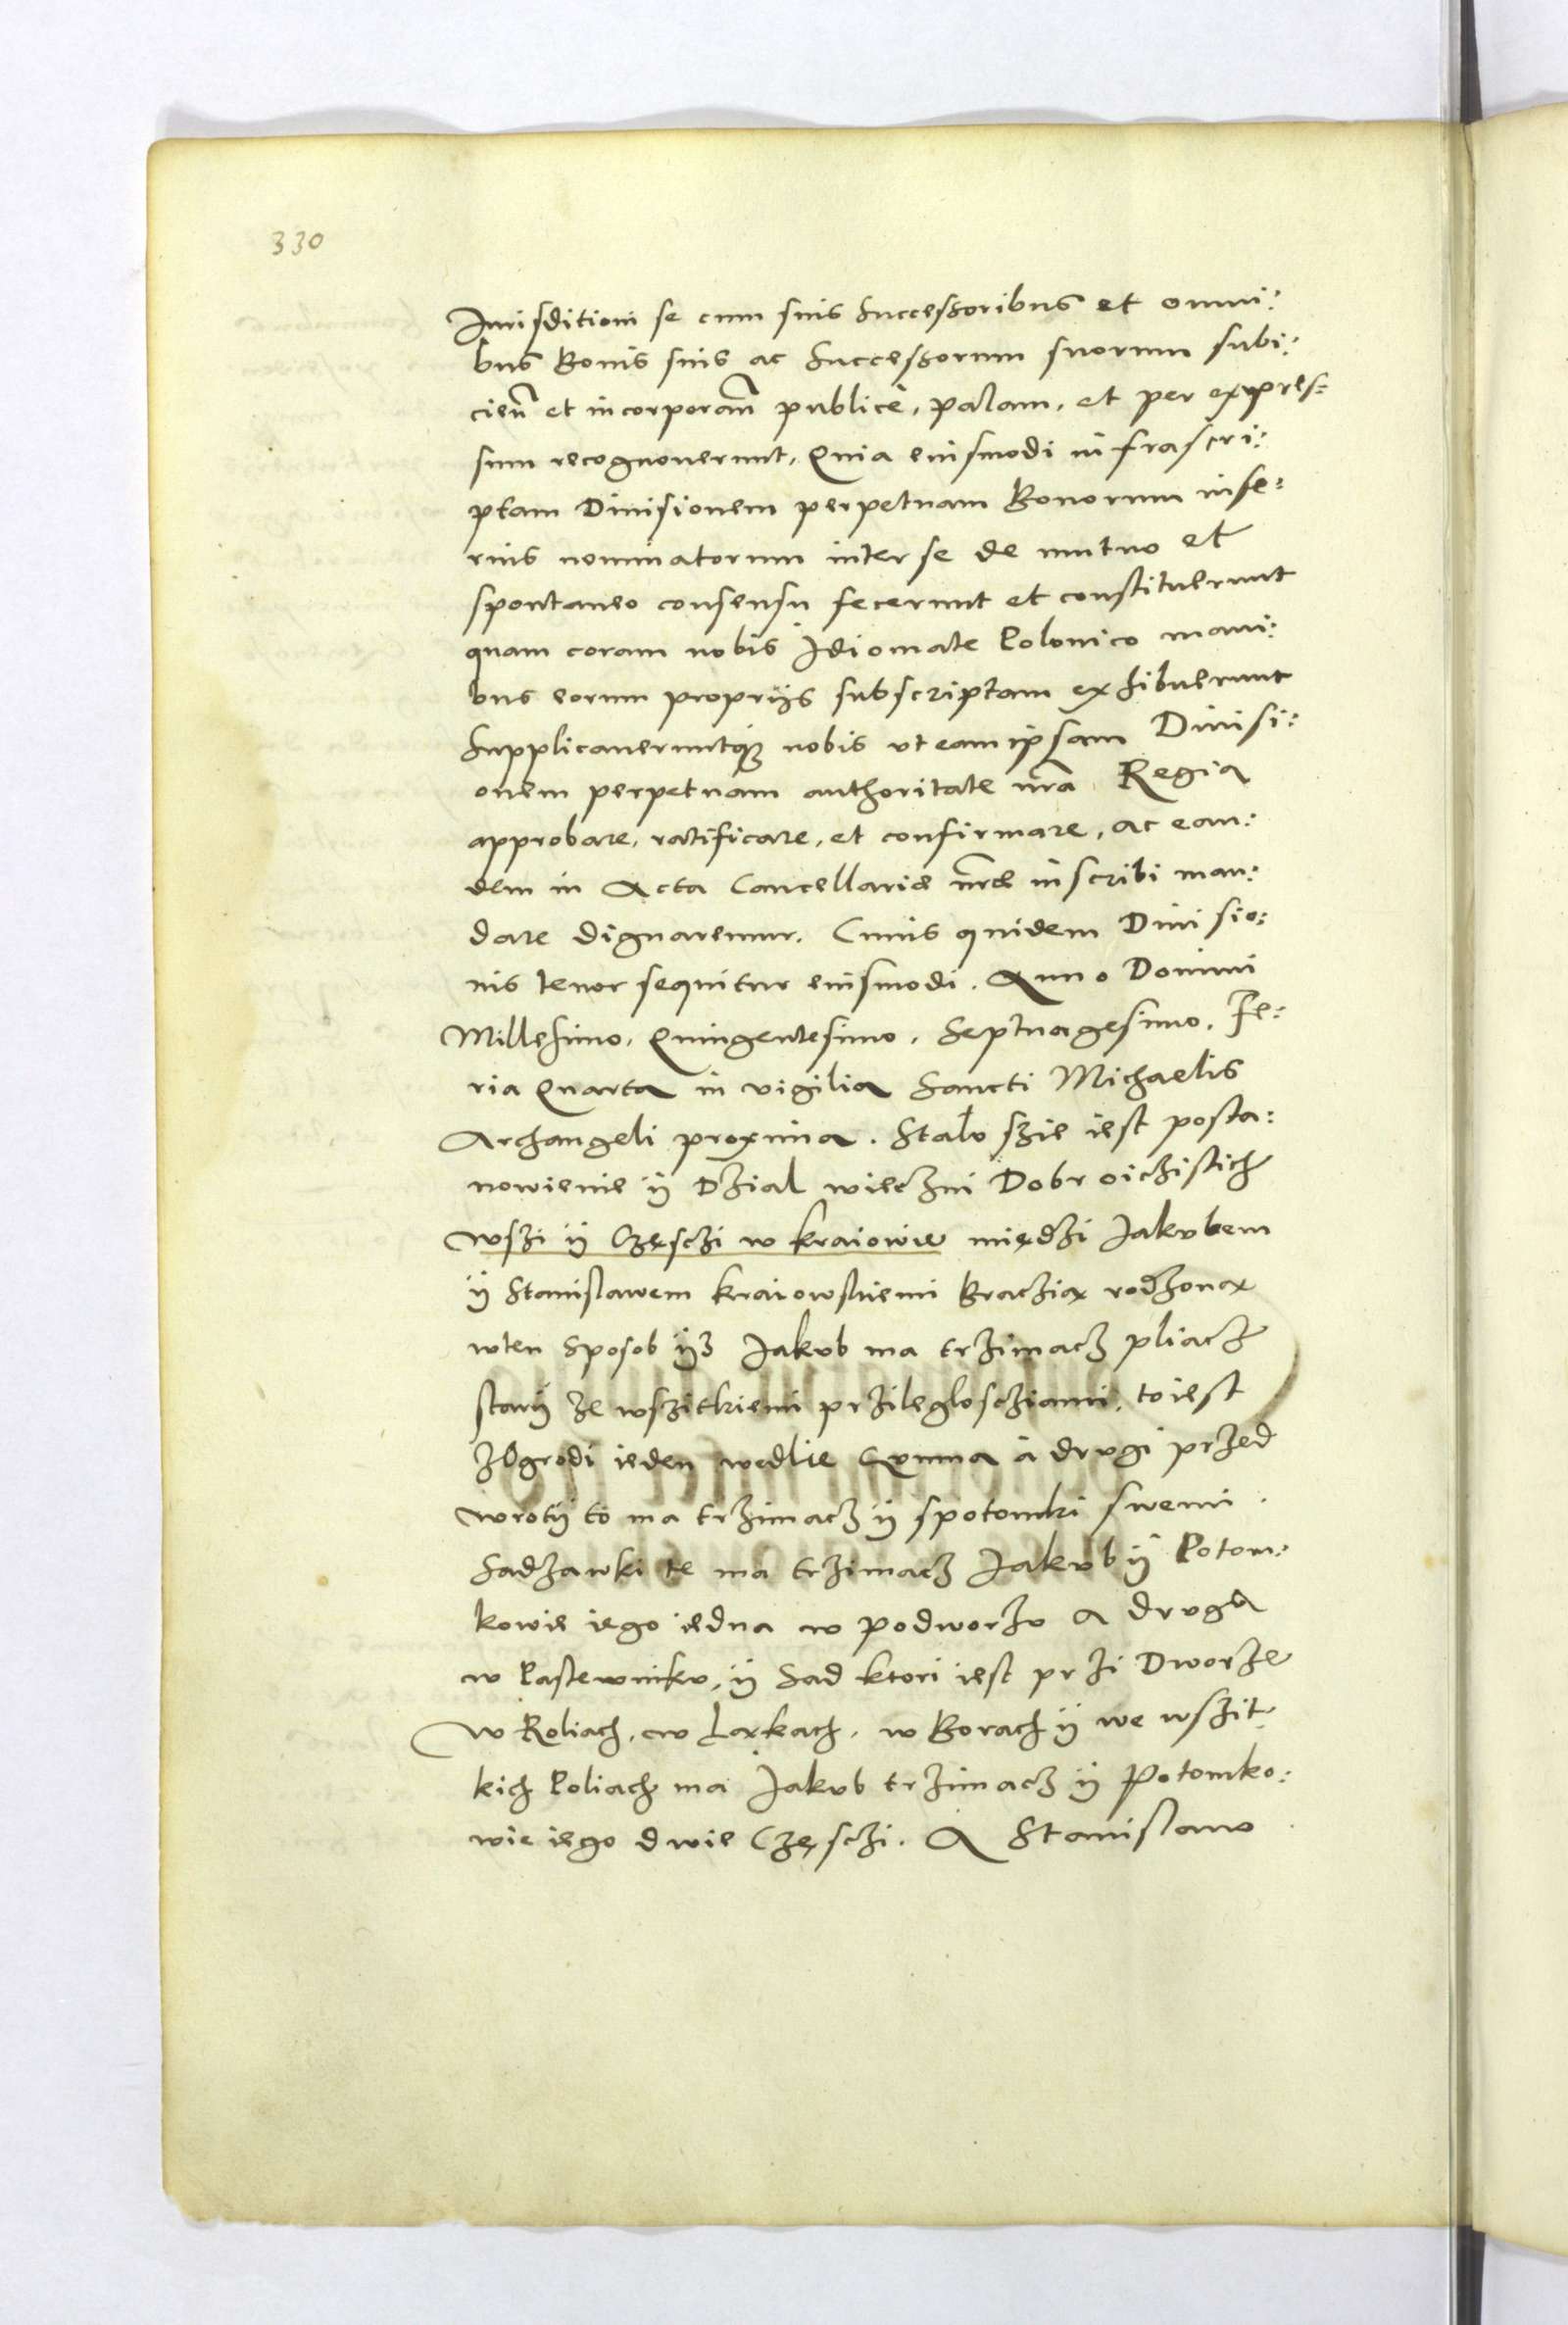 330
Jurisditioni se cum suis Successoribus et omni:
bus Bonis suis ac Successorum suorum subi:
cien̄ et incorporan̄ publicè, palam, et per expres:
sum recognouerunt, Quia eiusmodi infrascri:
ptam Diuisionem perpetuam Bonorum infe:
rius nominatorum inter se de mutuo et
spontaneo consensu fecerunt et constituerunt
quam coram nobis Idiomate Polonico mani:
bus eorum proprijs subscriptam exhibuerunt
Supplicaueruntq3 nobis vt eam ipsam Diuisi:
onem perpetuam authoritate nr̄a Regia
approbare, ratificare, et confirmare, ac ean:
dem in Acta Cancellariæ nr̄æ inscribi man:
dare dignaremur. Cuius quidem Diuisio:
nis tenor sequitur eiusmodi. Anno Domini
Millesimo, Quingentesimo, Septuagesimo, Fe:
ria Quarta in vigilia Sancti Michaelis
Archangeli proxima. Stalo szie iest posta:
nowienie ÿ Dział wieczni Dobr oiczistich
wszi ÿ Częsczi w kraiowie międzi Jakubem
ÿ Stanislawem kraiowskiemi Braczią rodzoną
wten sposob ÿz Jakub ma trzimacz pliacz
starÿ ze wszitkiemi przileglosciami, to iest
zogrodi ieden wedlie Gumna à drugi przed
wrotÿ to ma trzimacz ÿ spotomki swemi.
Sadzawki te ma trzimacz Jakub ÿ Potom:
kowie iego iedna w podworzu a druga
w Pastewniku, ÿ Sad ktori iest przi Dworze
W Roliach, w Łąkach, w Borach ÿ we wszit:
kich Poliach ma Jakub trzimacz ÿ Potomko:
wie iego dwie Częsczi. A Stanislaw